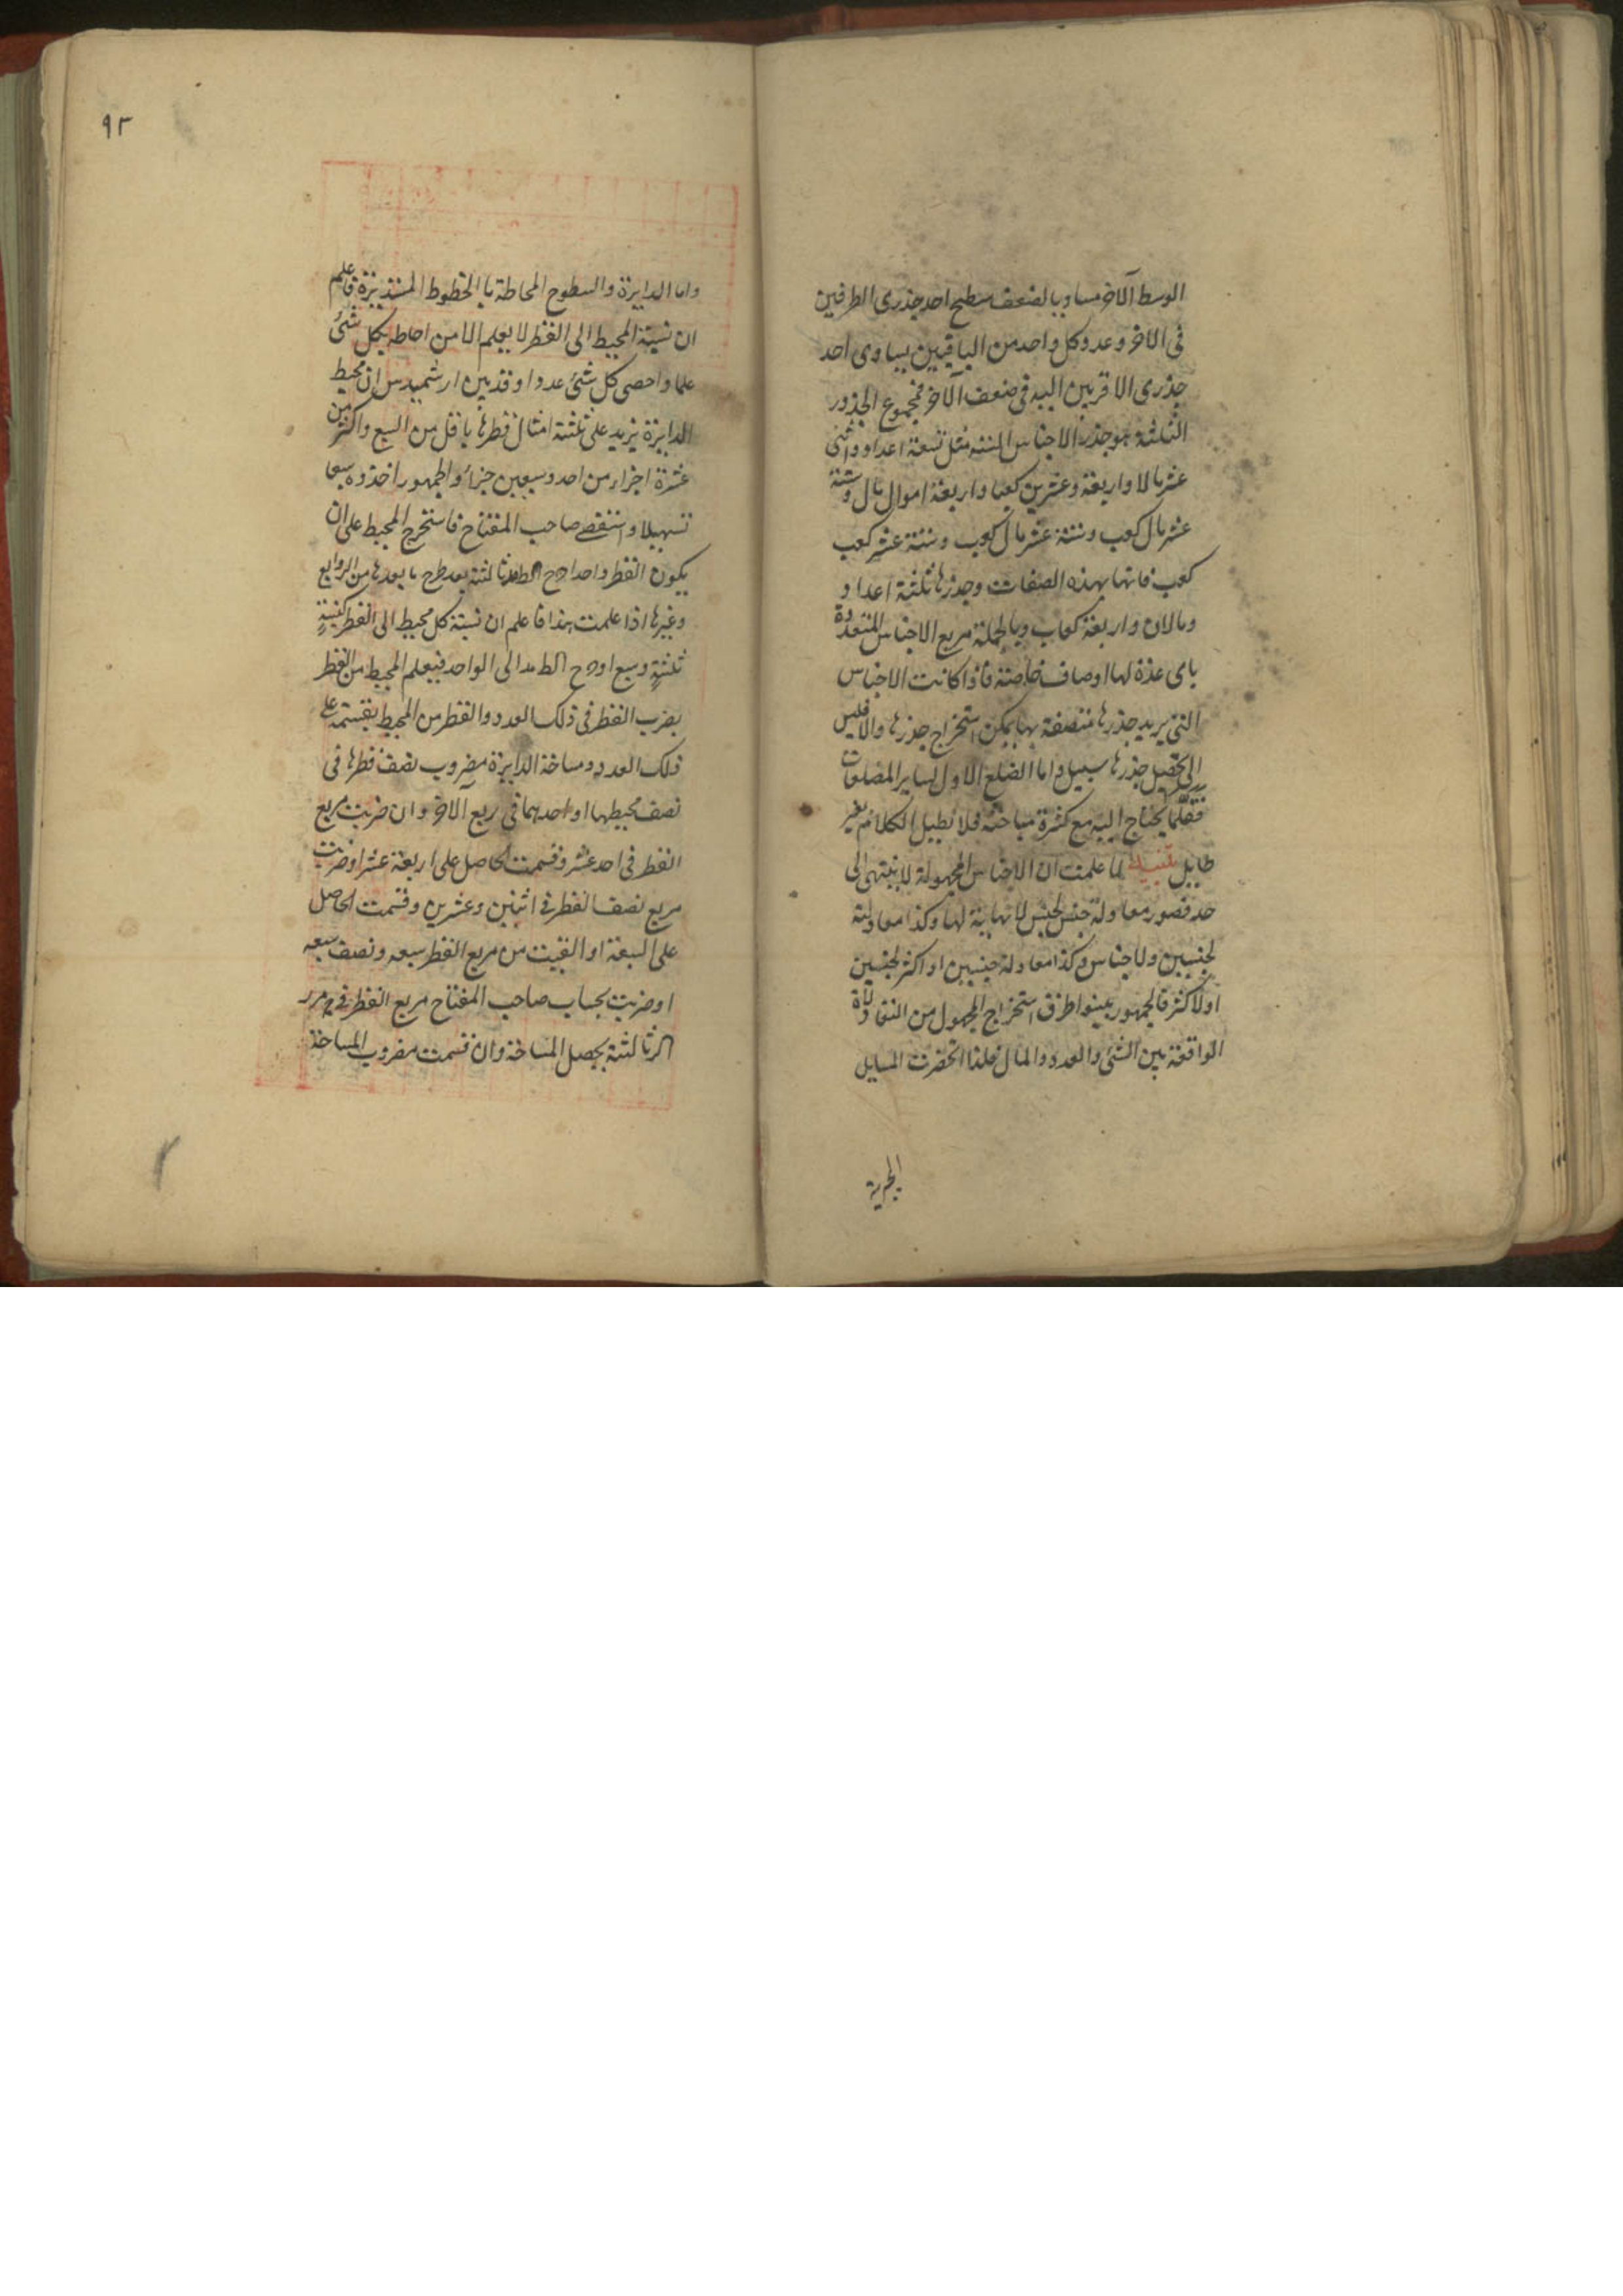 الوسط الآخر مساويا لضعف مسطح احد جذرى الطرفين
فى الآخر وعدد كل واحد من الباقيين يساوى احد
جذرى الاقربين اليه فى ضعف الآخر فمجموع الجذور
الثلثة هو جذر الاجناس الستة مثل تسعة اعداد واثنى
عشر مالا واربعة وعشرين كعبا واربعة اموال مال وستة
عشر مال كعب وستة عشر مال كعب وستة عشر كعب
كعب فانها بهذه الصفات وجذرها ثلثة اعداد و
ومالان واربعة كعاب وبالجملة مربع الاجناس المتعددة
باى عدة لها اوصاف خاصة فاذا كانت الاجناس
التى يريد جذرها متصفة بها يمكن استخراج جذرها والا فليس
الى تحصيل جذرها سبيل واما الضلع الاول لساير المضلعات
فقلما يحتاج اليه مع كثرة مباحثه فلا نطيل الكلام بغير
طايل تنبيه لما علمت ان الاجناس المجهولة لا ينتهى الى
حد فصور معادلة جنس لجنس لا نهاية لها وكذا معادلة
لجنسين ولاجناس وكذا معادلة جنسين او اكثر لجنسين
او لاكثر فالجمهور بينوا طرق استخراج المجهول من المعادلة
الواقعة بين الشئ والعدد والمال فلذا انحصرت المسايل
الجبرية
٩٢
واما الدايرة والسطوح المحاطة بالخطوط المستديرة فاعلم
ان نسبة المحيط الى القطر لا يعلم الا من احاط بكل شئ
علما واحصى كل شئ عددا وقد بين ارشميدس ان محيط
الدايرة يزيد على ثلثة امثال قطرها باقل من السبع واكثر من
عشرة اجزاء من احد وسبعين جزأ والجمهور اخذوه سبعا
تسهيلا واستقصى صاحب المفتاح فاستخرج المحيط على ان
يكون القطر واحدا ثالثة بعد طرح ما بعدها من الروابع
وغيرها اذا علمت هذا فاعلم ان نسبة كل محيط الى القطر كنسبة
ثلثة وسبع او الى الواحد فيعلم المحيط من القطر
بضرب القطر فى ذلك العدد والقطر من المحيط بقسمته على
ذلك العدد ومساحة الدايرة مضروب نصف قطرها فى
نصف محيطها او احدهما فى ربع الآخر وان ضربت مربع
القطر فى احد عشر وقسمت الحاصل على اربعة عشر او ضربت
مربع نصف القطر فى اثنين وعشرين وقسمت الحاصل
على السبعة او القيت من مربع القطر سبعه ونصف سبعه
او ضربت بحساب صاحب المفتاح مربع القطر فى
ثالثة يحصل المساحة وان قسمت مضروب المساحة